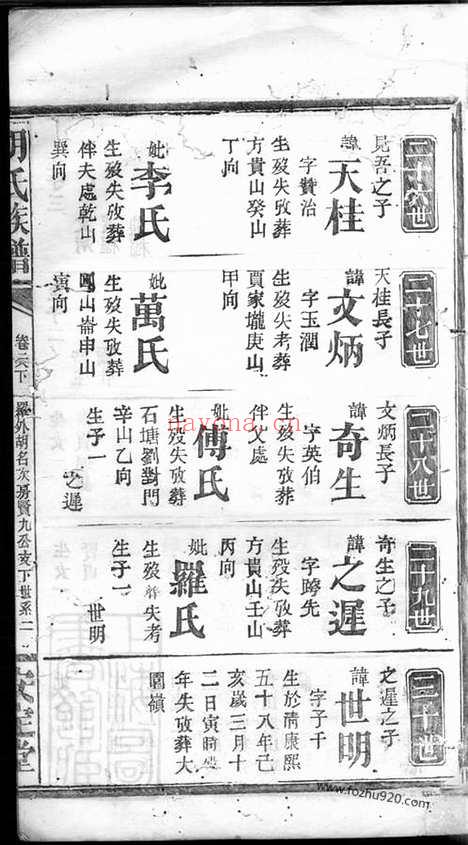 二十六世
見吾之子
諱天桂
字贊治
生歿失攷葬
方貴山癸山
丁向
妣李氏
生歿失攷葬
伴夫處乾山
巽向
二十七世
天桂長子
諱文炳
字玉潤
生歿失考葬
賈家壠庚山
甲向
妣萬氏
生歿失攷葬
山崙申山
寅向
二十八世
文炳長子
諱奇生
字英伯
生歿失攷葬
伴父處
妣傅氏
生歿失攷葬
石塘劉對門
辛山乙向
生子一
之遲
二十九世
奇生之子
諱之遲
字跨先
生歿失攷葬
方貴山壬山
丙向
妣羅氏
生歿葬失考
生子一
世明
三十世
之遲之子
諱世明
字子千
生於清康熙
五十八年己
亥歲三月十
二日寅時歿
年失攷葬大
圍嶺
胡氏族譜
卷六下
羅外胡名次房賢九公支下世系二
堂
nayona.cn
www.fozhu920.com